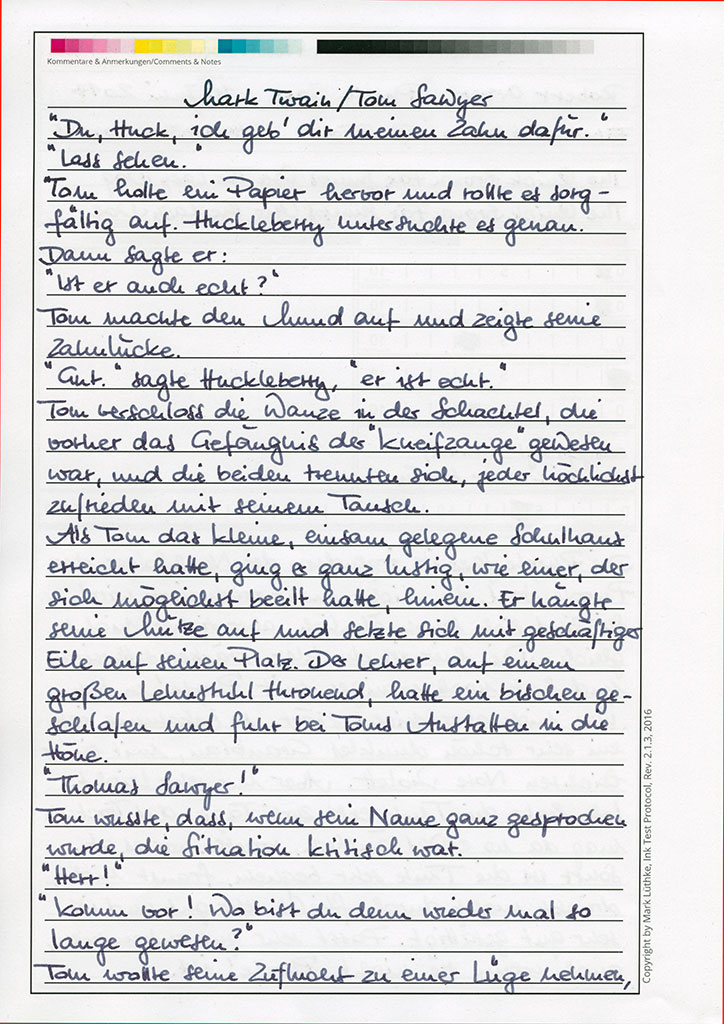 Kommentare & Anmerkungen/Comments & Notes
Mark Twain/Tom Sawyer
"Du, Huck, ich geb' dir meinen Zahn dafür."
"Lass sehen."
Tom holte ein Papier hervor und rollte es sorg
fältig auf. Huckleberry untersuchte es genau.
Dann sagte er:
"Ist er auch echt?"
Tom machte den Mund auf und zeigte seine
Zahnlücke.
"Gut." sagte Huckleberry, "er ist echt."
Tom verschloss die Wanze in der Schachtel, die
vorher das Gefängnis der "Kneifzange" gewesen
war, und die beiden trennten sich, jeder höchlichst
zufrieden mit seinem Tausch.
Als Tom das kleine, einsam gelegene Schulhaus
erreicht hatte, ging es ganz lustig, wie einer, der
sich möglichst beeilt hatte, hinein. Er hängte
seine Mütze auf und setzte sich mit geschäftiger
Eile auf seinen Platz. Der Lehrer, auf einem
großen Lehnstuhl thronend, hatte ein bischen ge-
schlafen und fuhr bei Toms Anstalten in die
Höhe.
"Thomas Sawyer!"
Tom wusste, dass, wenn sein Name ganz gesprochen
wurde, die Situation kritisch war.
"Herr!"
"Komm vor! Wo bist du denn wieder mal so
lange gewesen?"
Tom wollte seine Zuflucht zu einer Lüge nehmen,
Copyright by Mark Lüthke, Ink Test Protocol, Rev. 2.1.3, 2016